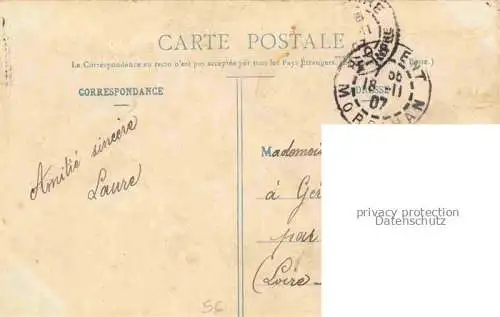 CARTE POSTALE
La Correspondance au recto n'est pas acceptée par tous les Pays Etrangers.
CORRESPONDANCE
MORBIHAN
18 -11
07
Amitié sincère
Laure
Mademoi
à Gé
par
(Loire
privacy protection
Datenschutz
56